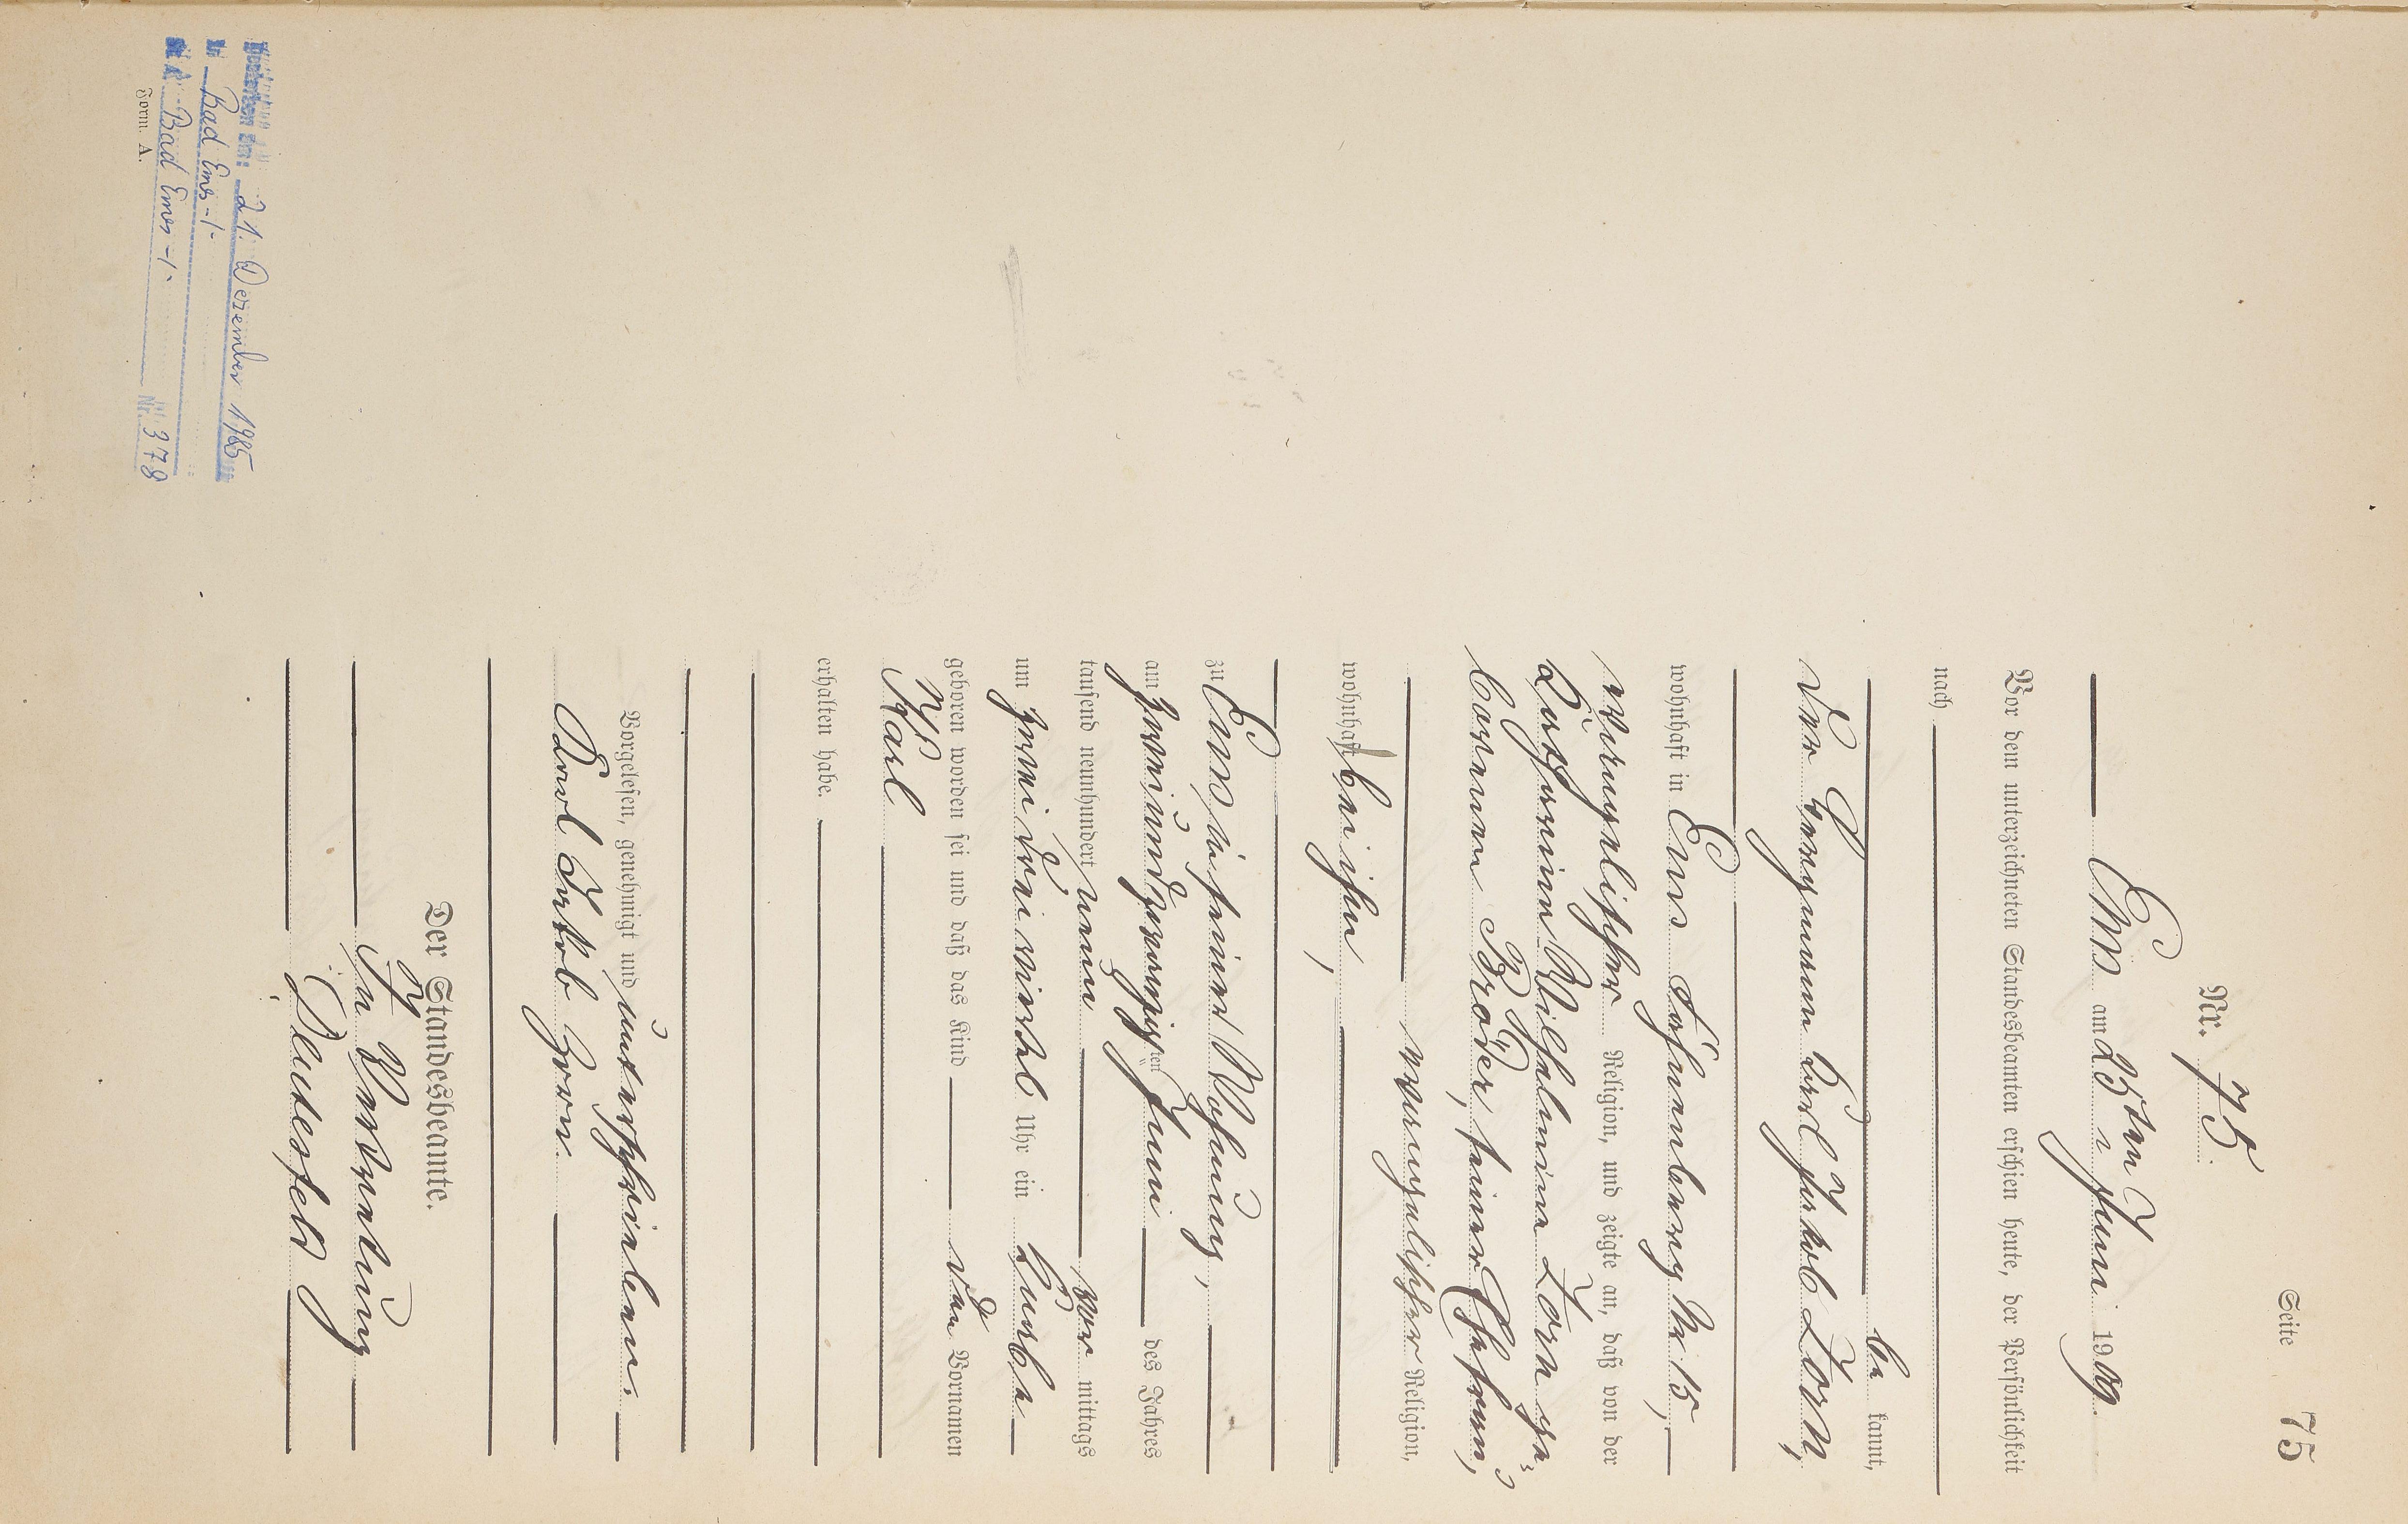 Seite 75
Nr. 75.
Ems am 25ten Juni 1909.
Vor dem unterzeichneten Standesbeamten erschien heute, der Persönlichkeit
nach
be kannt,
der Bergmann Karl Jakob Zorn,
wohnhaft in Ems Löhnberg No 15,
evangelischer Religion, und zeigte an, daß von der
Wilhelmine Zorn ge=
borenen Bröder, seiner Ehefrau,
evangelischer Religion,
wohnhaft bei ihm,
zu Ems in seiner Wohnung,
am zweiundzwanzigsten Juni des Jahres
tausend neunhundert neun vor mittags
um zwei drei viertel Uhr ein Knabe
geboren worden sei und daß das Kind den Vornamen
Karl
erhalten habe.
Vorgelesen, genehmigt und unterschrieben.
Karl Jakob Zorn.
Der Standesbeamte.
In Vertretung
Deutesfeld
Gestorben am: 21. Dezember 1985
in Bad Ems -/-
StA Bad Ems -/- Nr. 378
Form. A.